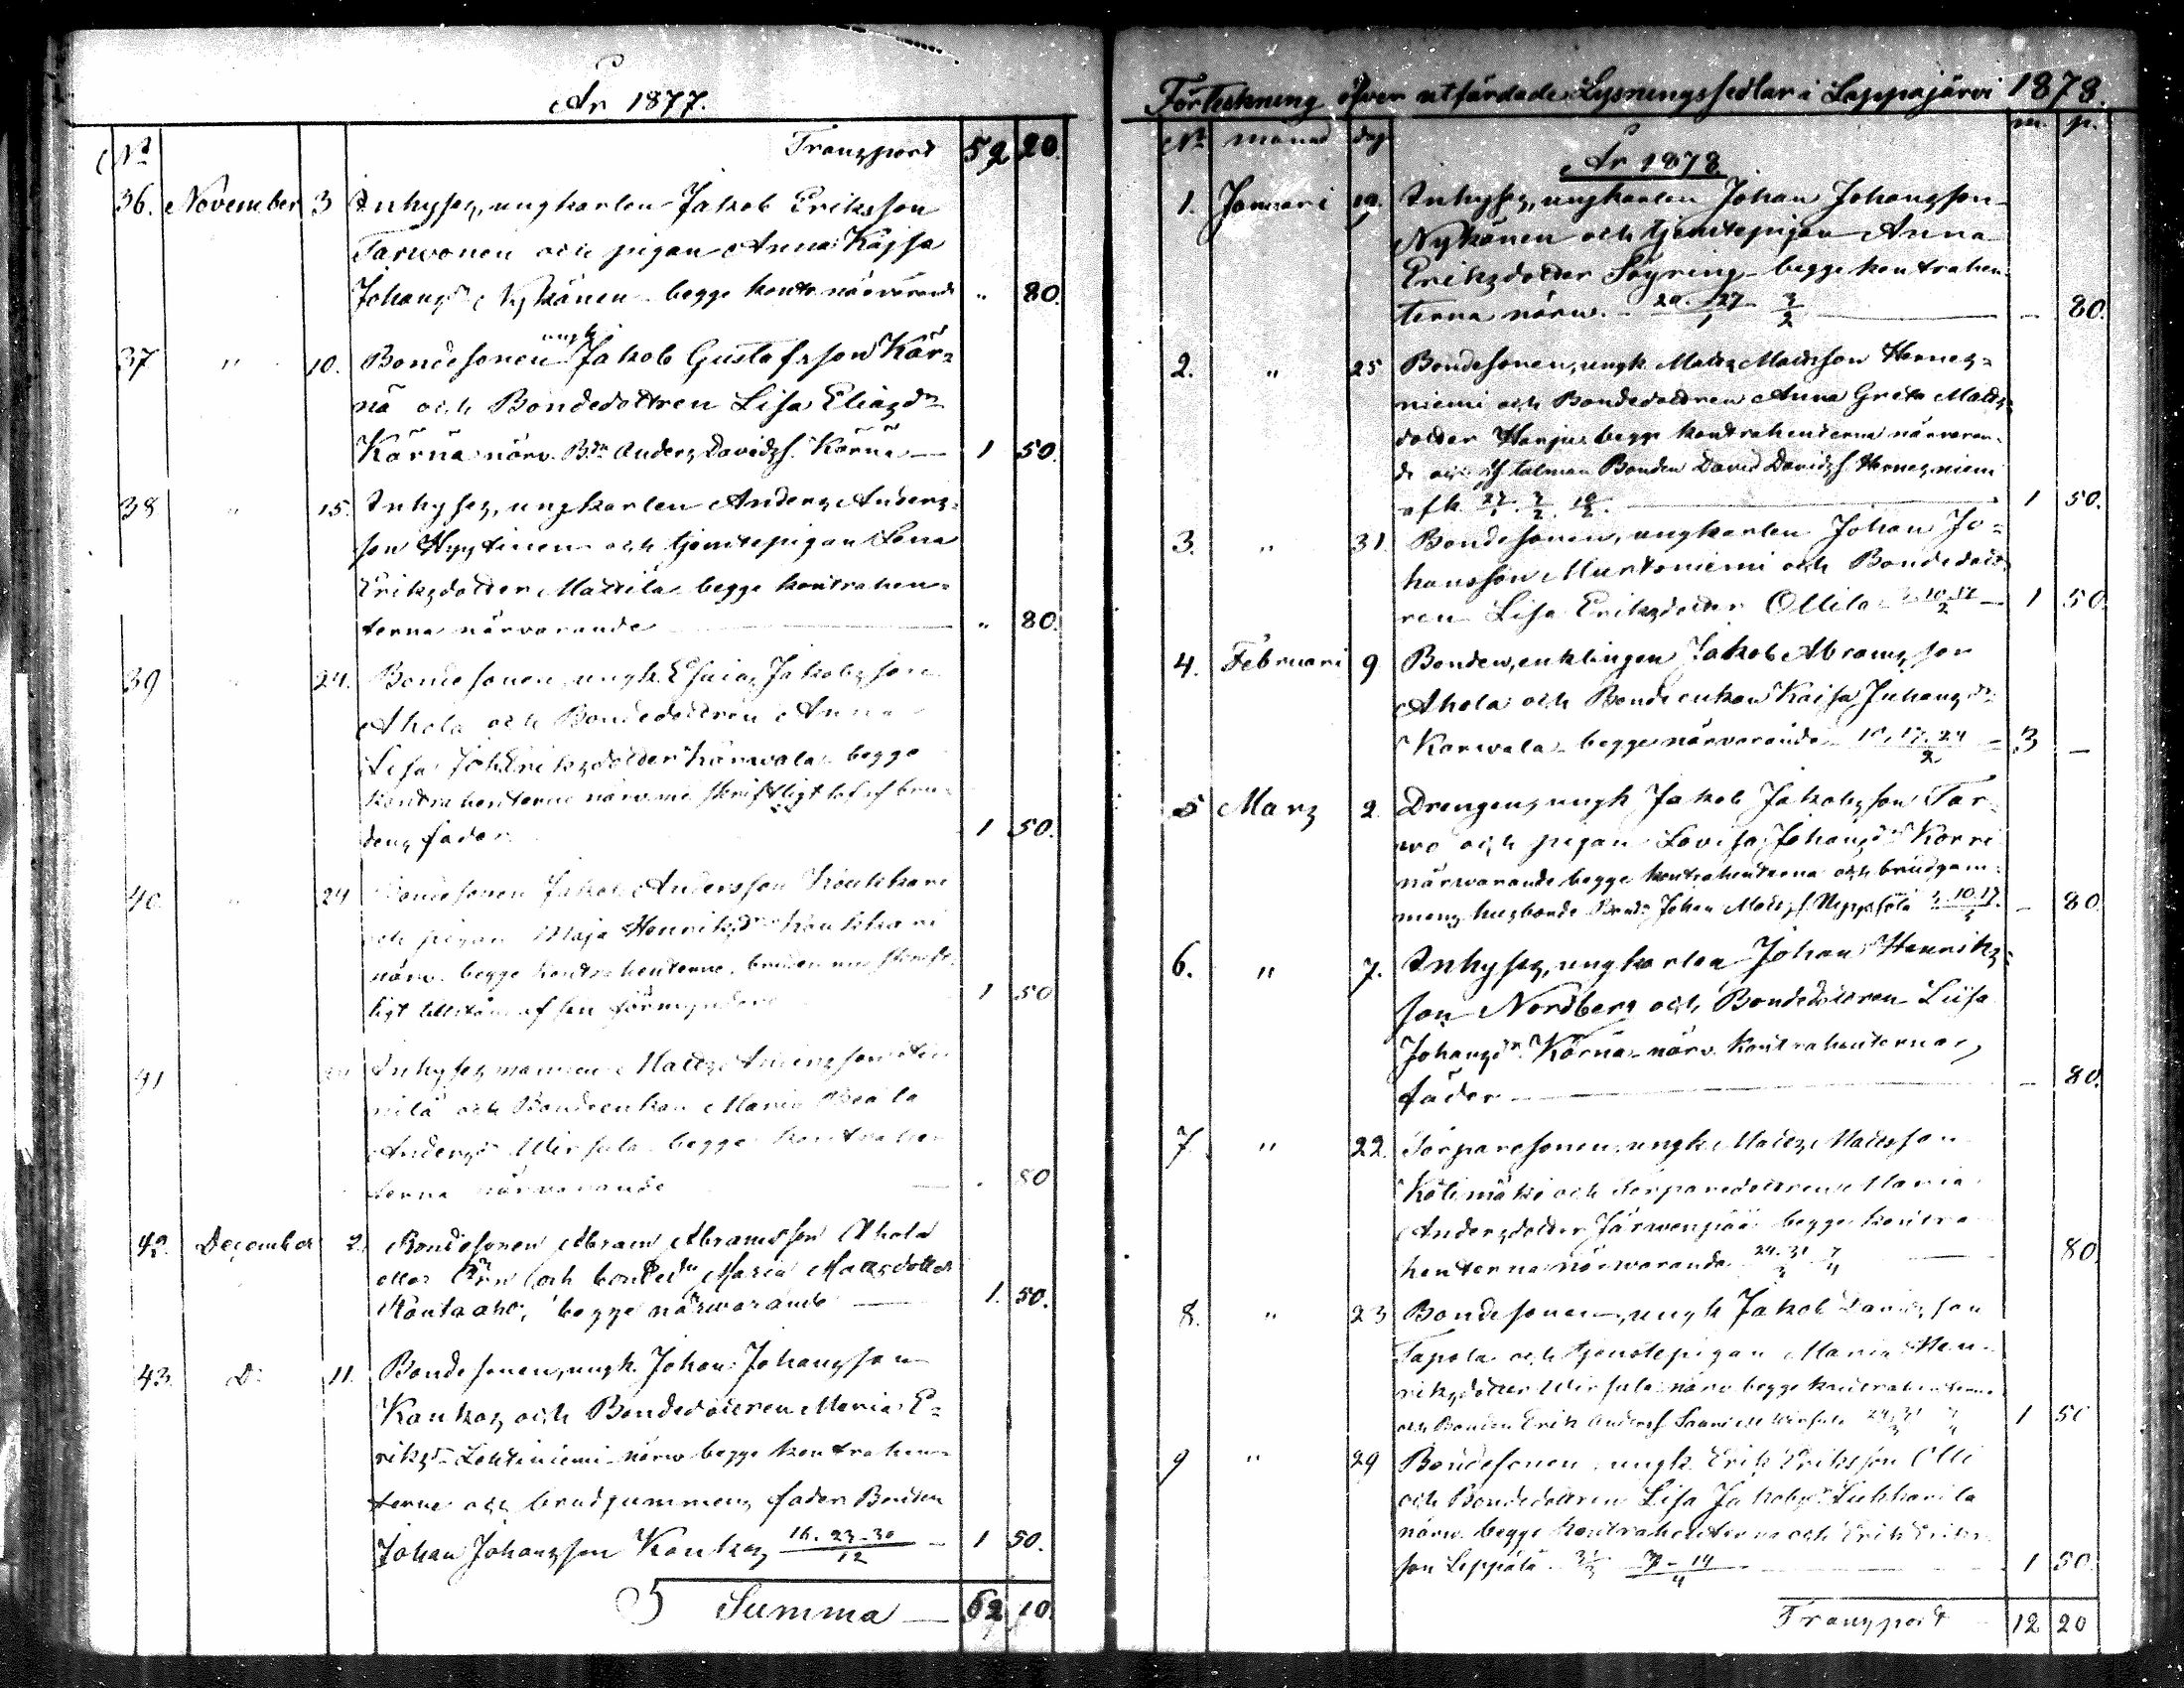 År 1877.
No Transport 52 20.
36. November 3 Inhyses, ungkarlen Jakob Eriksson
Tarvonen och pigan Anna Kajsa
Johansdr Nykänen begge kontr. närvarande " 80.
37 " 10. Bondesonen ungk. Jakob Gustafsson Kär=
nä och Bondedottren Lisa Eliasdr
Kärnä närv. Bdn Anders Davidss. Kärnä — 1 50.
38 " 15. Inhyses, ungkarlen Anders Anders=
son Hyytinen och tjenstepigan Lena
Eriksdotter Mattila begge kontrahen=
terna närvarande — " 80.
39 " 24. Bondesonen ungk. Esaias Jakobsson
Ahola och Bondedottren Anna
Lisa Joh Eriksdotter Karvala begge
kontrahenterne närv. me skriftligt af bru=
dens fader 1 50.
40 " 24 Bondesonen Jakob Andersson Koukkari
och pigan Maja Henriksdr Koukkari
närv. begge kontrahenterne, bruden me skrift=
ligt tillstånd af sin förmyndare 1 50
41 Inhysesmannen Matts Andersson
nilä och Bondeenkan Maria
Andersdr Wirsula begge kontrahen
terna närvarande — 80
42. December 2. Bondesonen Abram Abramsson Ahola
och bonded Maria Mattsdotter
Rantaaho, begge närwarande — 1. 50.
43. Do 11. Bondesonen, ungk. Johan Johansson
Kankas och Bondedottren Maria E=
riksdr Lehtiniemi närv begge kontrahen=
terne och brudgummens fader Bonden
Johan Johansson Kankas 16. 23. 30 / 12 — 1 50.
Summa — 62 10.
Förteckning öfver utfärdade Lysningssedlar i Lappajärvi 1878.
No månad dag m. p.
År 1878
1. Januari 19. Inhyses, ungkarlen Johan Johansson
Nykänen och tjenstepigan Anna
Eriksdotter Söyring begge kontrahen=
terna närv. 20. 27 / 1 3 / 2 — 80.
2. " 25 Bondesonen, ungk. Matts Mattsson Hernes=
niemi och Bondedottren Anna Greta Matts=
dotter Harju begge kontrahenterna närvaran=
de och talman Bonden David Davidss. Hernesniemi
afk 27 / 1 3 / 2 10 / 2. — 1 50.
3. " 31. Bondesonen, ungkarlen Johan Jo=
hansson Murtoniemi och Bondedott
ren Lisa Eriksdotter Ollila 3. 10. 17 / 2 — 1 50.
4. Februari 9 Bonden, enklingen Jakob Abramsson
Ahola och Bondeenkan Kaisa Juhansdr
Karwala begge närvarande 10. 17. 24 / 2 — 3 —
5 Mars 2. Drengen, ungk Jakob Jakobsson Tar=
vo och pigan Lovisa Johansdr Korri
närwarande begge kontrahenterna och brudgum=
mens husbonde Bonden Johan Mattss. 3. 10. 17 / 3 — 80.
6. " 7. Inhyses, ungkarlen Johan Henriks=
son Nordberg och Bondedottren Liisa
Johansdr Kärnä närv. kontrahenternas
fäder — 80.
7 " 22. Torparesonen, ungk. Matts Mattsson
Kölimäki och torparedottren Maria
Andersdotter Järwenpää begge kontra
henterna närwarande 24. 31 / 3 7 / 4 — 80.
8. " 23 Bondesonen, ungk Jakob Davidsson
Tapola och tjenstepigan Maria Hen=
riksdotter Wirsula närv begge kontrahenterna
och Bonden Erik Anderss Wirsula 24. 31 / 3 7 / 4 1 50
9 " 29 Bondesonen, ungk. Erik Eriksson Olli
och Bondedottren Lisa Jakobsdr Liukkarila
närv. begge kontrahenterna och Erik Eriks=
son Leppälä 31 / 3 7 – 14 / 4 — 1 50.
Transport 12 20